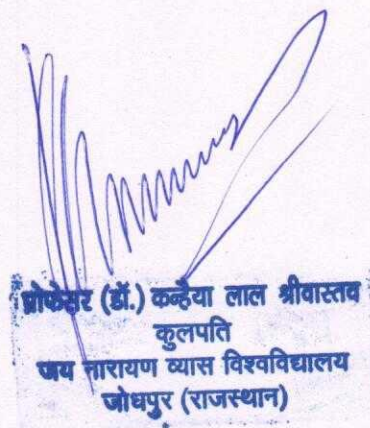 प्रोफेसर (डॉ.) कन्हैया लाल श्रीवास्तव
कुलपति
जय नारायण व्यास विश्वविद्यालय
जोधपुर (राजस्थान)